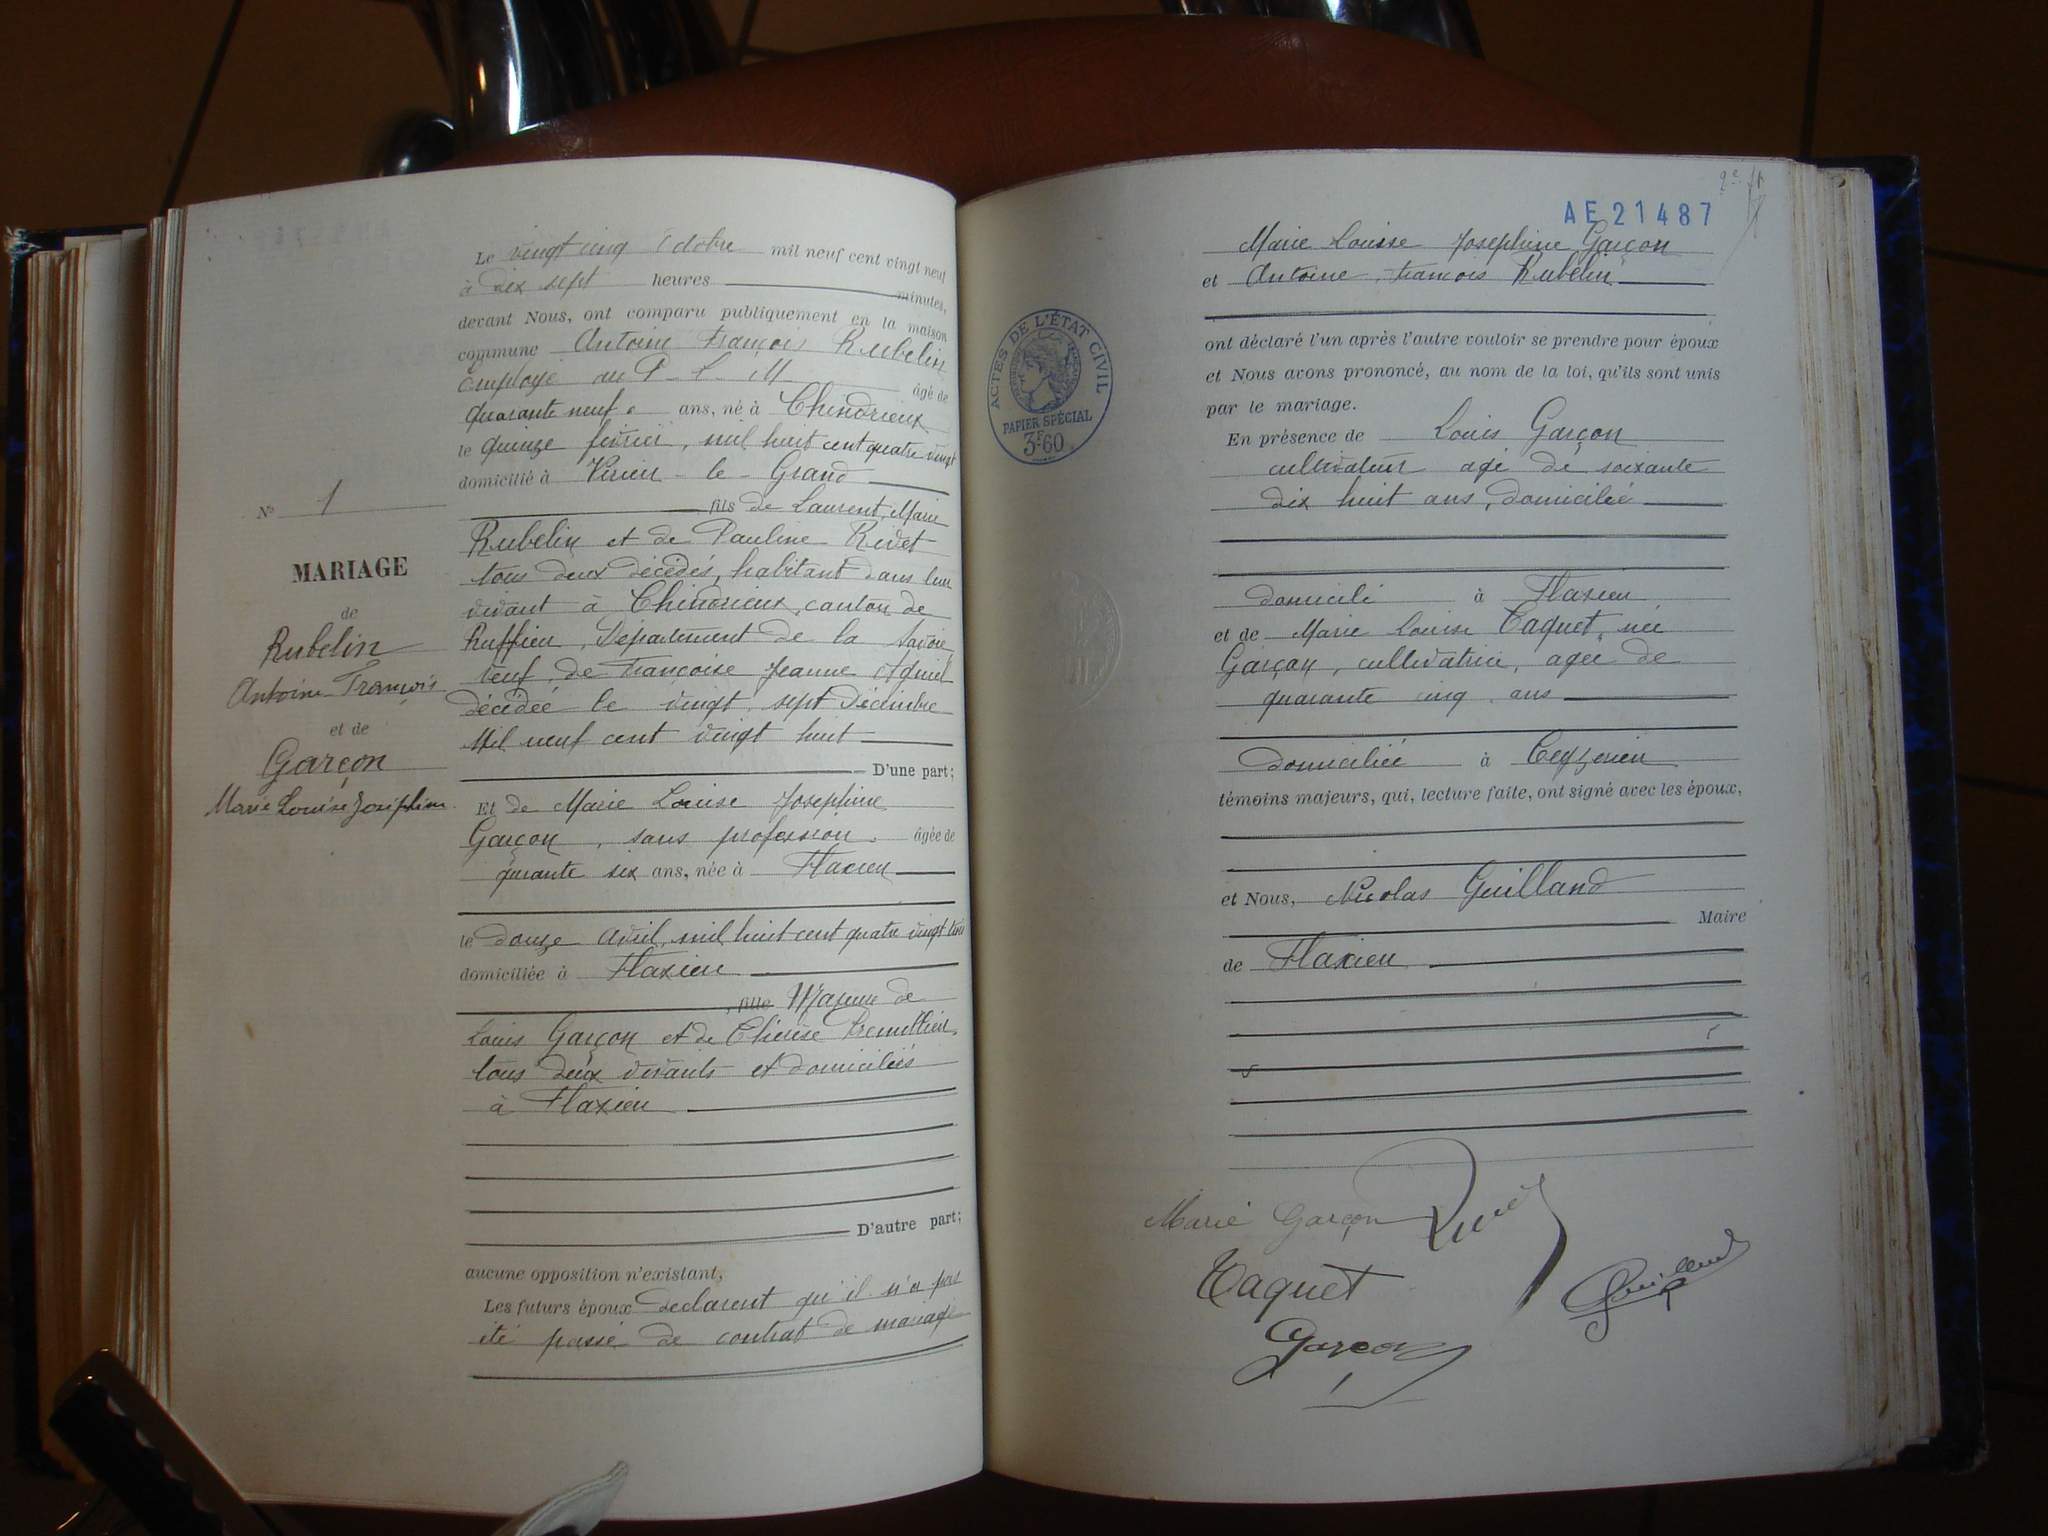 Le vingt cinq Octobre mil neuf cent vingt neuf
à dix sept heures minutes,
devant Nous, ont comparu publiquement en la maison
commune Antoine François Rubelin
employé au P. L. M âgé de
quarante neuf ans, né à Chindrieux
le quinze février, mil huit cent quatre vingt
domicilié à Virieu - le - Grand
fils de Laurent, Marie
Rubelin et de Pauline Rivet
tous deux décédés, habitant dans leur
vivant à Chindrieux, canton de
Ruffieu, Département de la Savoie
veuf, de Françoise Jeanne
décédée le vingt sept Décembre
Mil neuf cent vingt huit
D'une part;
Nº 1
MARIAGE
de
Rubelin
Antoine François
et de
Garçon
Marie Louise Joséphine
Et de Marie Louise Josephine
Garçon, sans profession. âgée de
quarante six ans, née à Flaxieu
le douze avril, mil huit cent quatre vingt trois
domiciliée à Flaxieu
, fille Majeure de
Louis Garçon et de Thérèse
tous deux vivants et domiciliés
à Flaxieu
D'autre part;
aucune opposition n'existant,
Les futurs époux déclarent qu'il n'a pas
été passé de contrat de mariage
AE 21487
Marie Louise Josephine Garçon
et Antoine, François Rubelin
ont déclaré l'un après l'autre vouloir se prendre pour époux
et Nous avons prononcé, au nom de la loi, qu'ils sont unis
par le mariage.
ACTES DE L'ÉTAT CIVIL
PAPIER SPÉCIAL
3F60
En présence de Louis Garçon
cultivateur agé de soixante
dix huit ans, domicilié
domicilié à Flaxieu
et de Marie Louise Taquet, née
Garçon, cultivatrice, agée de
quarante cinq ans
domiciliée à Ceyzerieu
témoins majeurs, qui, lecture faite, ont signé avec les époux,
et Nous, Nicolas Guilland
Maire
de Flaxieu
Marie Garçon
Taquet
Guilland
Garçon